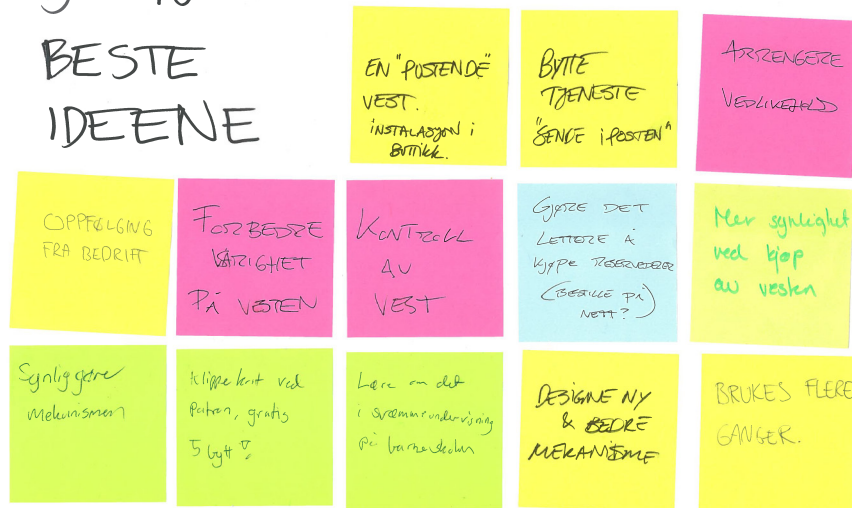 BESTE
IDEENE
EN "PUSTENDE"
VEST.
INSTALASJON I
BUTIKK.
BYTTE
TJENESTE
"SENDE I POSTEN"
ARRENGERE
VEDLIKEHOLD
OPPFØLGING
FRA BEDRIFT
FORBEDRE
VARIGHET
PÅ VESTEN
KONTROLL
AV
VEST
GJØRE DET
LETTERE Å
KJØPE RESERVEDELER
(BESTILLE PÅ
NETT?)
Mer synlighet
ved kjøp
av vesten
Synliggjøre
mekanismen
Klippekort ved
patron, gratis
5 bytt
Lære om det
i svømmeundervisning
på barneskolen
DESIGNE NY
& BEDRE
MEKANISME
BRUKES FLERE
GANGER.